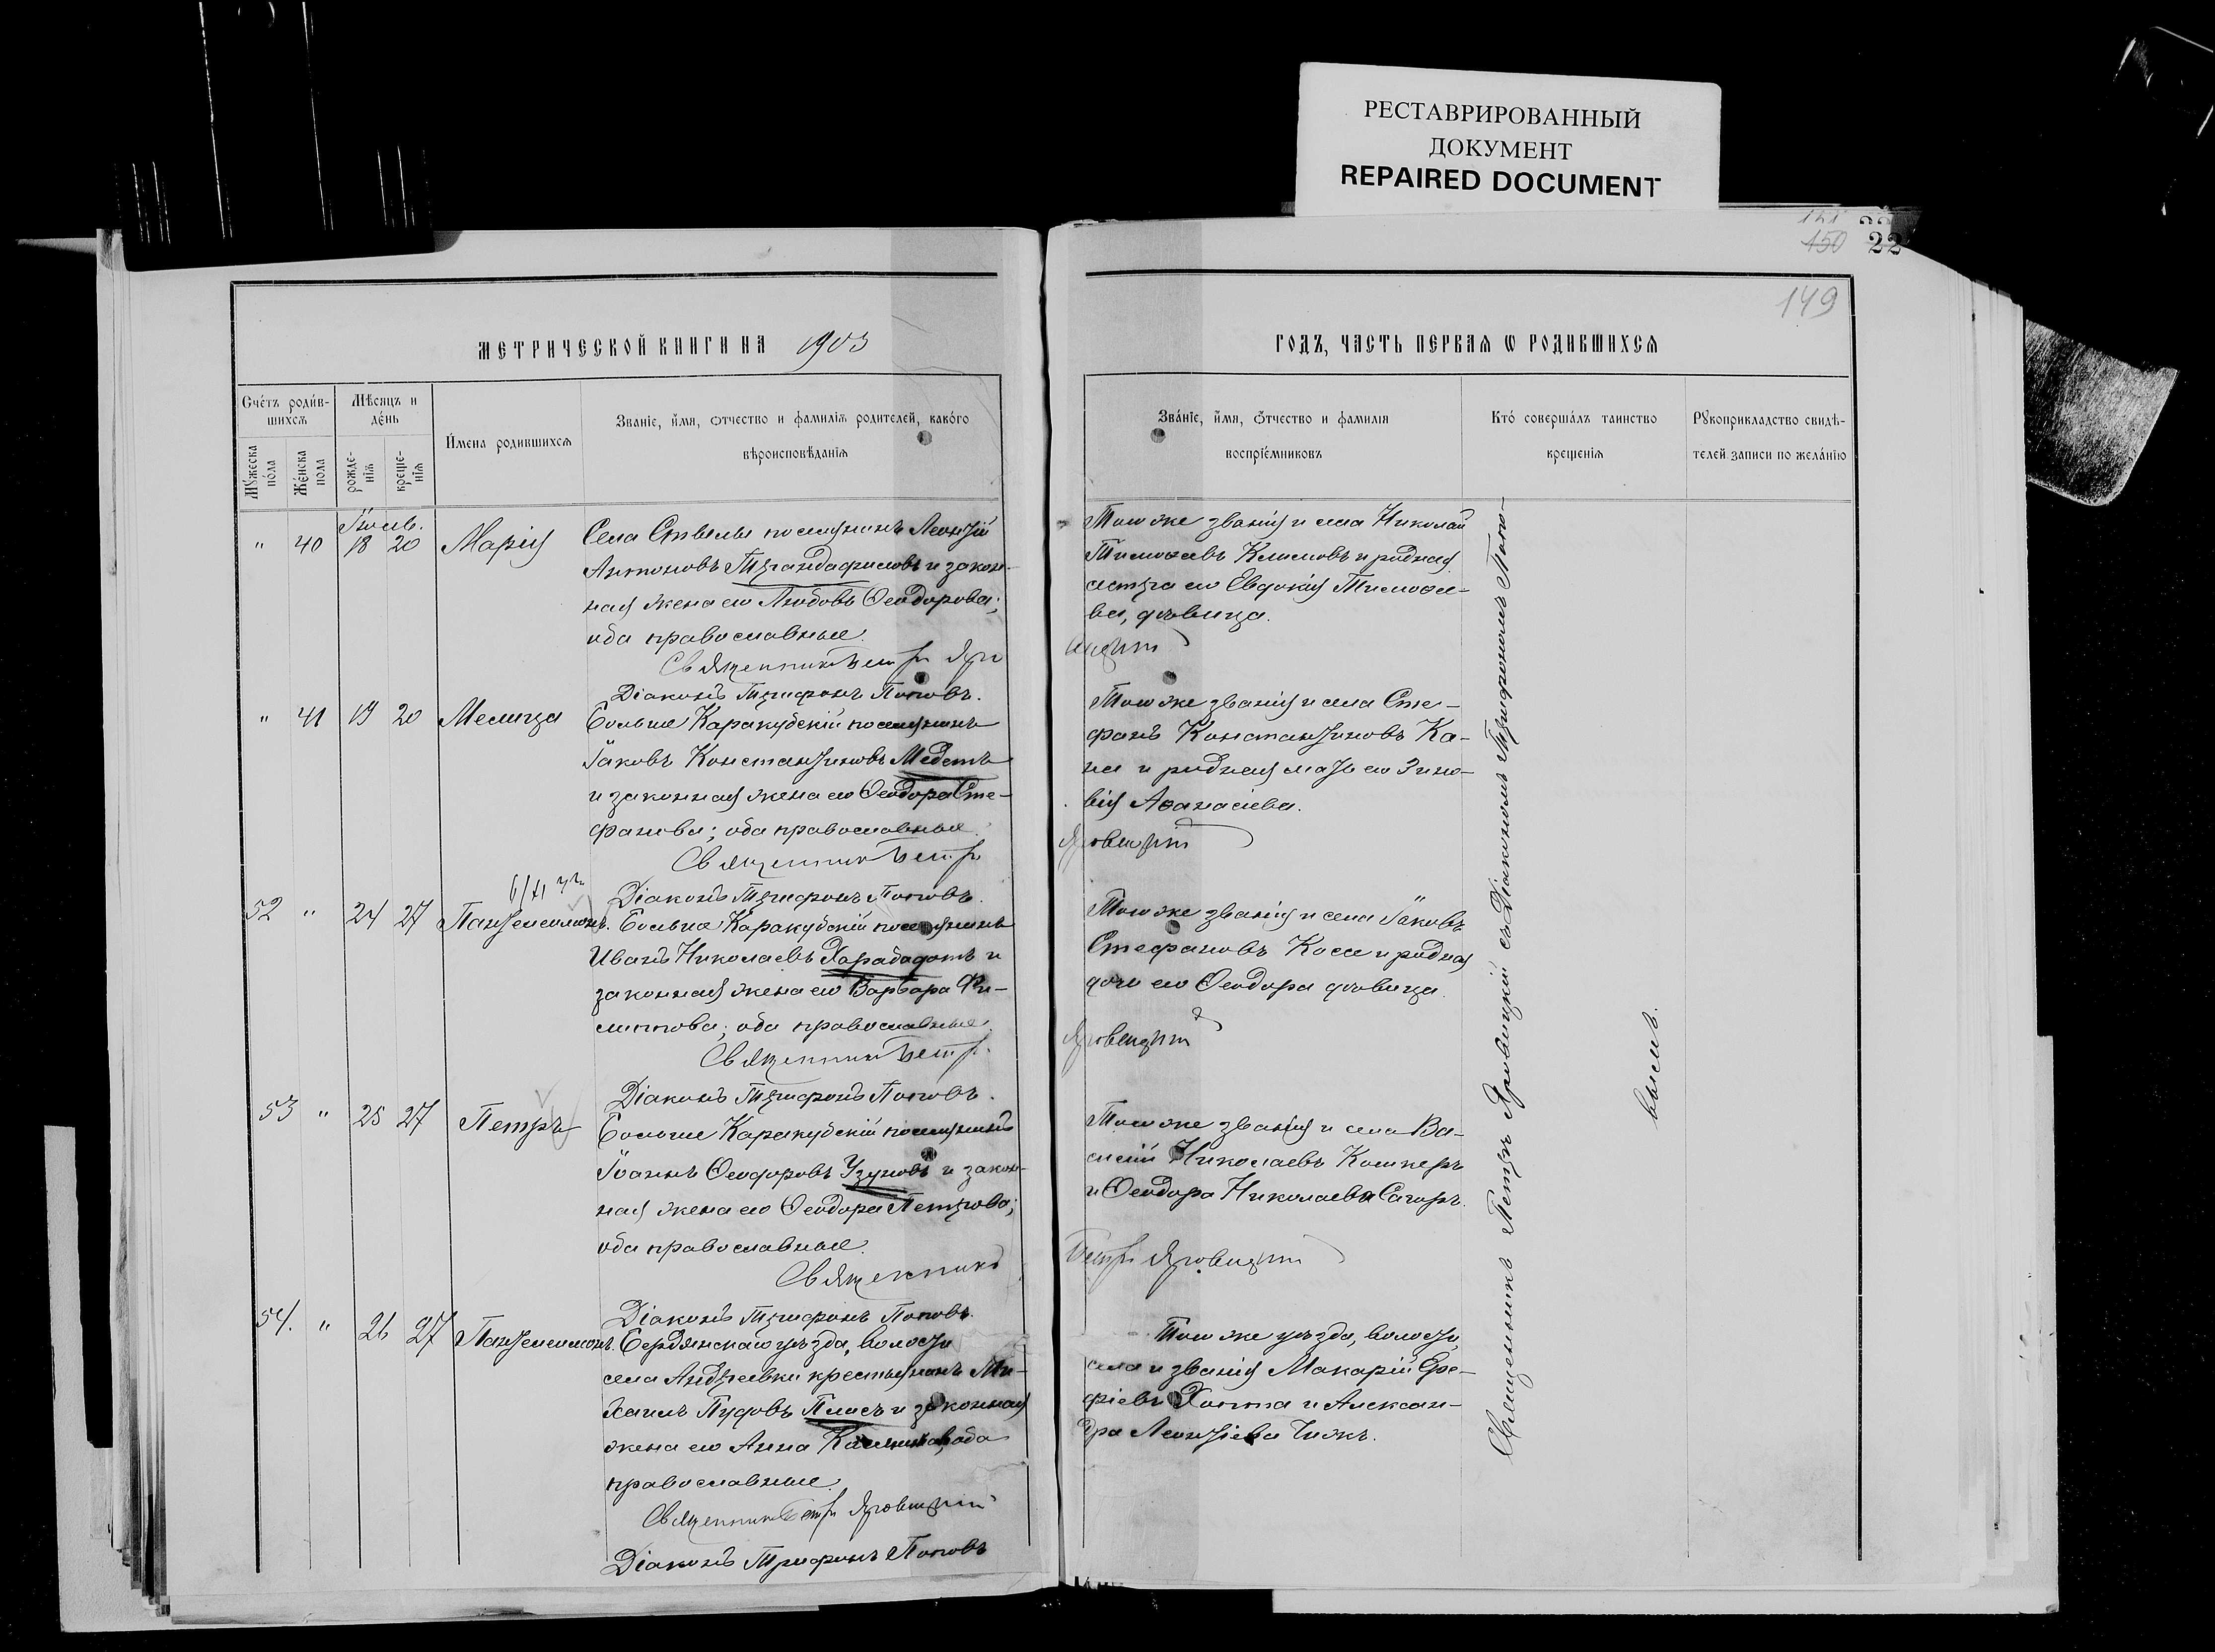 РЕСТАВРИРОВАННЫЙ
ДОКУМЕНТ
REPAIRED DOCUMENT
151
150 22
149
МЕТРИЧЕСКОЙ КНИГИ НА 1903
ГОДЪ, ЧАСТЬ ПЕРВАЯ Ѡ РОДИВШИХСЯ
Сче́тъ роди́в-
шихся
Мѣсяцъ и
де́нь
И҆́мена родившихся
Званіе, и҆́мя, ѻтчество и фамилія родителей, како́го
вѣроисповѣданія
Мꙋ́жеска
по́ла
Же́нска
пола
рожде-
нія
креще-
нія
Зва́ніе, и҆́мя, Ѻ́тчество и фамилія
воспріе́мниковъ
Кто́ соверша́лъ таинство
крещенія
Рꙋкоприкладство свидѣ-
телей записи по жела́нію
Іюль.
" 40 18 20 Марія
Села Стылы поселянинъ Леонтій
Антоновъ Трандафиловъ и закон-
ная жена его Любовь Ѳеодорова;
оба православные.
Священникъ Петръ Яро
Діаконъ Трифонъ Поповъ.
Того же званія и села Николай
Тимоѳеевъ Климовъ и родная
сестра его Евдокія Тимоѳее-
ва, дѣвица.
вицкій
" 41 19 20 Мелица
Больше Каракубскій поселянинъ
Іаковъ Константиновъ Медетъ
и законная жена его Ѳеодора Сте-
фанова; оба православные.
Священникъ Петръ
Діаконъ Трифонъ Поповъ.
Того же званія и села Сте-
фанъ Константиновъ Ка-
и родная мать его Зино-
вія Аѳанасіева.
Яровицкій
52 " 24 27 Пантелеимонъ.
Больше Каракубскій поселянинъ
Иванъ Николаевъ Харабадотъ и
законная жена его Варвара Фи-
липпова; оба православные.
Священникъ Петръ
Діаконъ Трифонъ Поповъ.
Того же званія и села Іаковъ
Стефановъ Косе и родная
дочь его Ѳеодора дѣвица.
Яровицкій
53 " 25 27 Петръ
Больше Каракубскій поселянинъ
Іоаннъ Ѳеодоровъ Узуновъ и закон-
ная жена его Ѳеодора Петрова;
оба православные.
Священникъ
Діаконъ Трифонъ Поповъ.
Того же званія и села Ва-
силій Николаевъ Кошкеръ
и Ѳеодора Николаева Сагиръ.
Петръ Яровицкій
54. " 26 27 Пантелеимонъ.
Бердянскаго уѣзда, волости
села Андреевки крестьянинъ Ми-
хаилъ Пудовъ Плисъ и законная
жена его Анна оба
православные.
Священникъ Петръ Яровицкій
Діаконъ Трифонъ Поповъ
Того же уѣзда, волости,
села и званія Макарій Ере-
фіевъ Хотта и Алексан-
дра Леонтіева Чижъ.
Священникъ Петръ Яровицкій съ Діакономъ Трифономъ Попо-
вымъ.